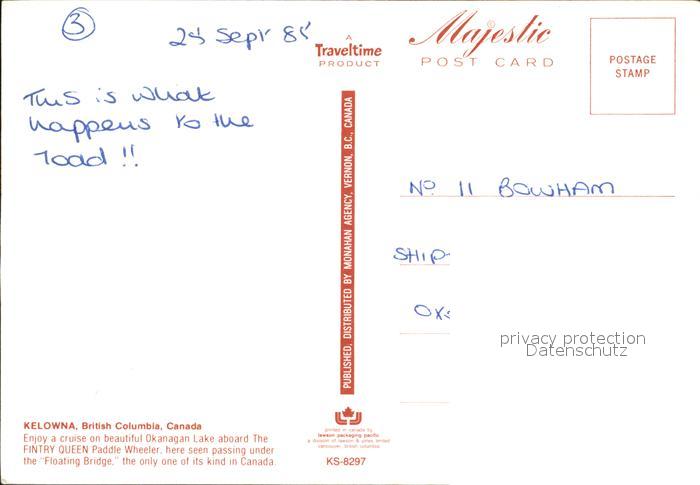 3
25 Sept 85
This is what
happens to the
road !!
A
Traveltime
PRODUCT
Majestic
POST CARD
POSTAGE
STAMP
PUBLISHED, DISTRIBUTED BY MONAHAN AGENCY, VERNON, B.C., CANADA
No 11 BOWHAM
SHIP-
privacy protection
Datenschutz
KELOWNA, British Columbia, Canada
Enjoy a cruise on beautiful Okanagan Lake aboard The
FINTRY QUEEN Paddle Wheeler, here seen passing under
the "Floating Bridge," the only one of its kind in Canada.
printed in canada by
lawson packaging pacific
a division of lawson & jones limited
vancouver, british columbia
KS-8297